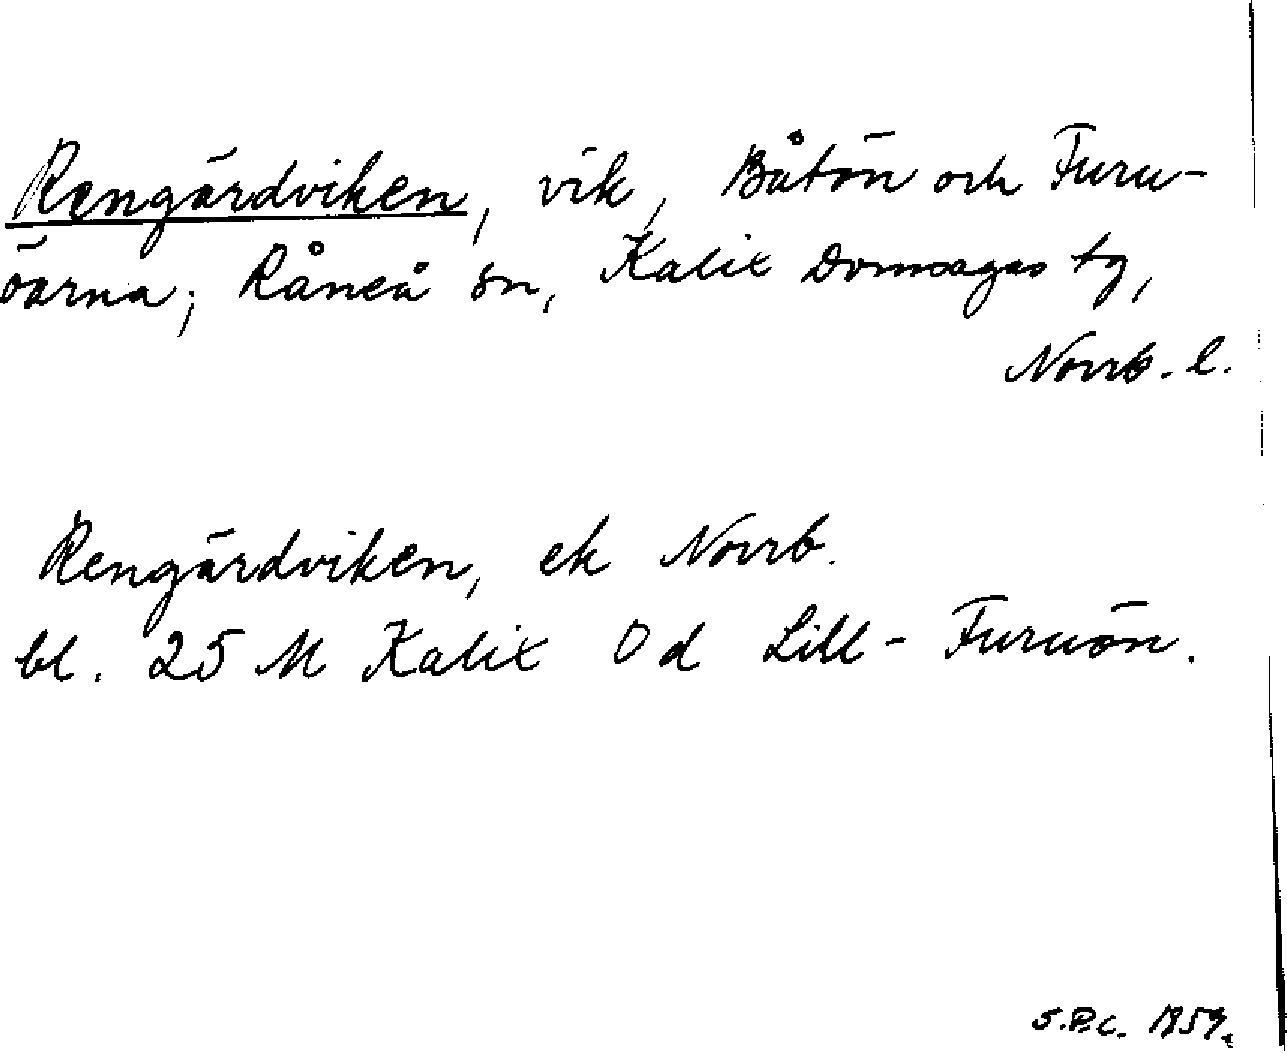 Rengärdviken, vik, Båtön och Furu-
öarna; Råneå sn, Kalix Domsagas tg,
Norrb. l.
Rengärdviken, ek Norrb.
bl. 25 M Kalix Od Lill-Furuön.
S.P.C. 1959.